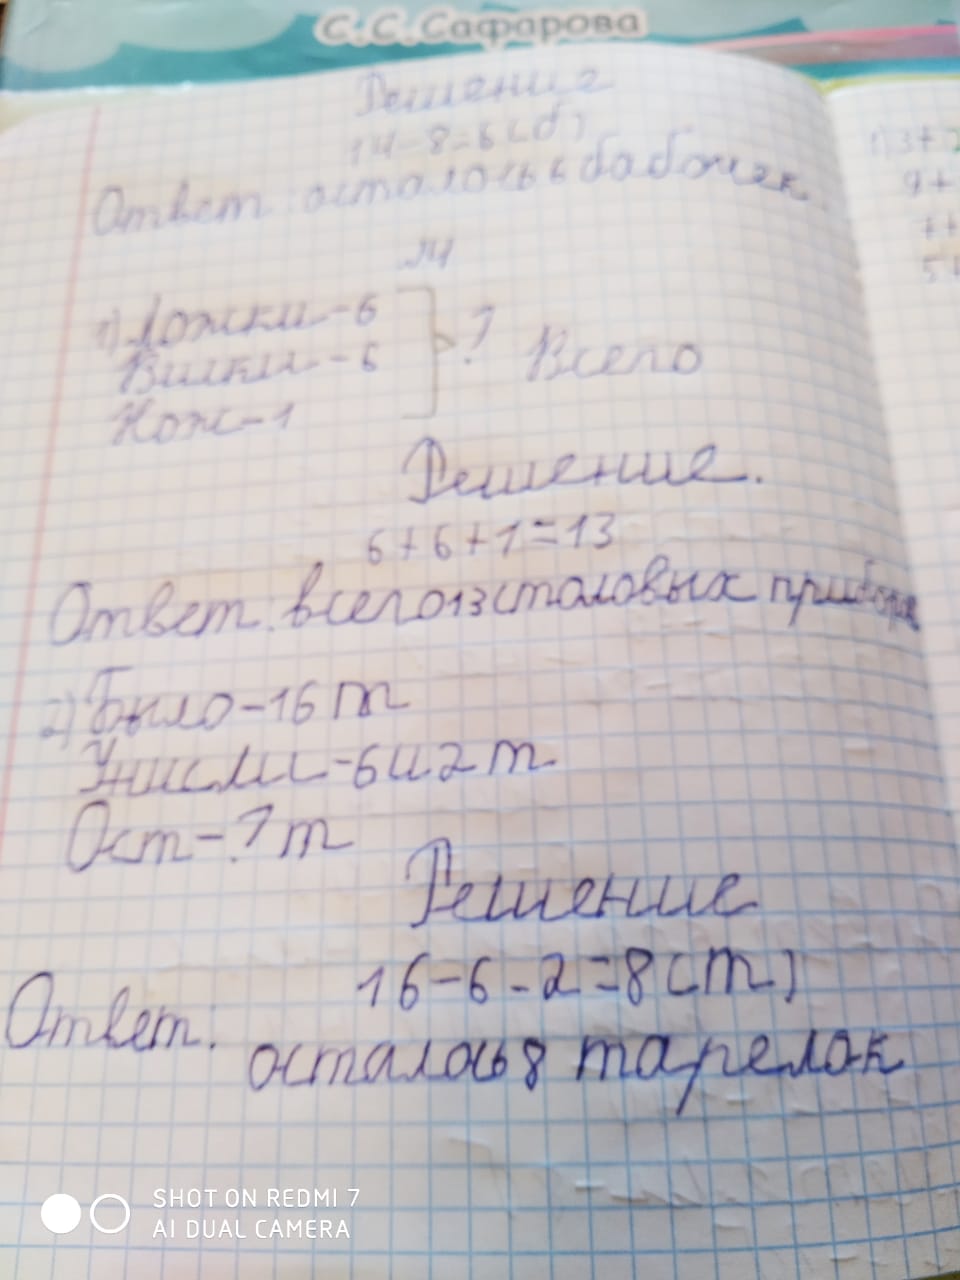 С.С.Сафарова
Решение
14-8=6(б)
Ответ: осталось 6 бабочек.
№4
1) Ложки-6
Вилки-6
Нож-1
? Всего
Решение.
6+6+1=13
Ответ: всего 13 столовых приборов
2) Было-16 т
Унисли-6 и 2 т
Ост-? т
Решение
16-6-2=8(т)
Ответ:
осталось 8 тарелок
1) 3+2
9+
7+
5+
SHOT ON REDMI 7
AI DUAL CAMERA